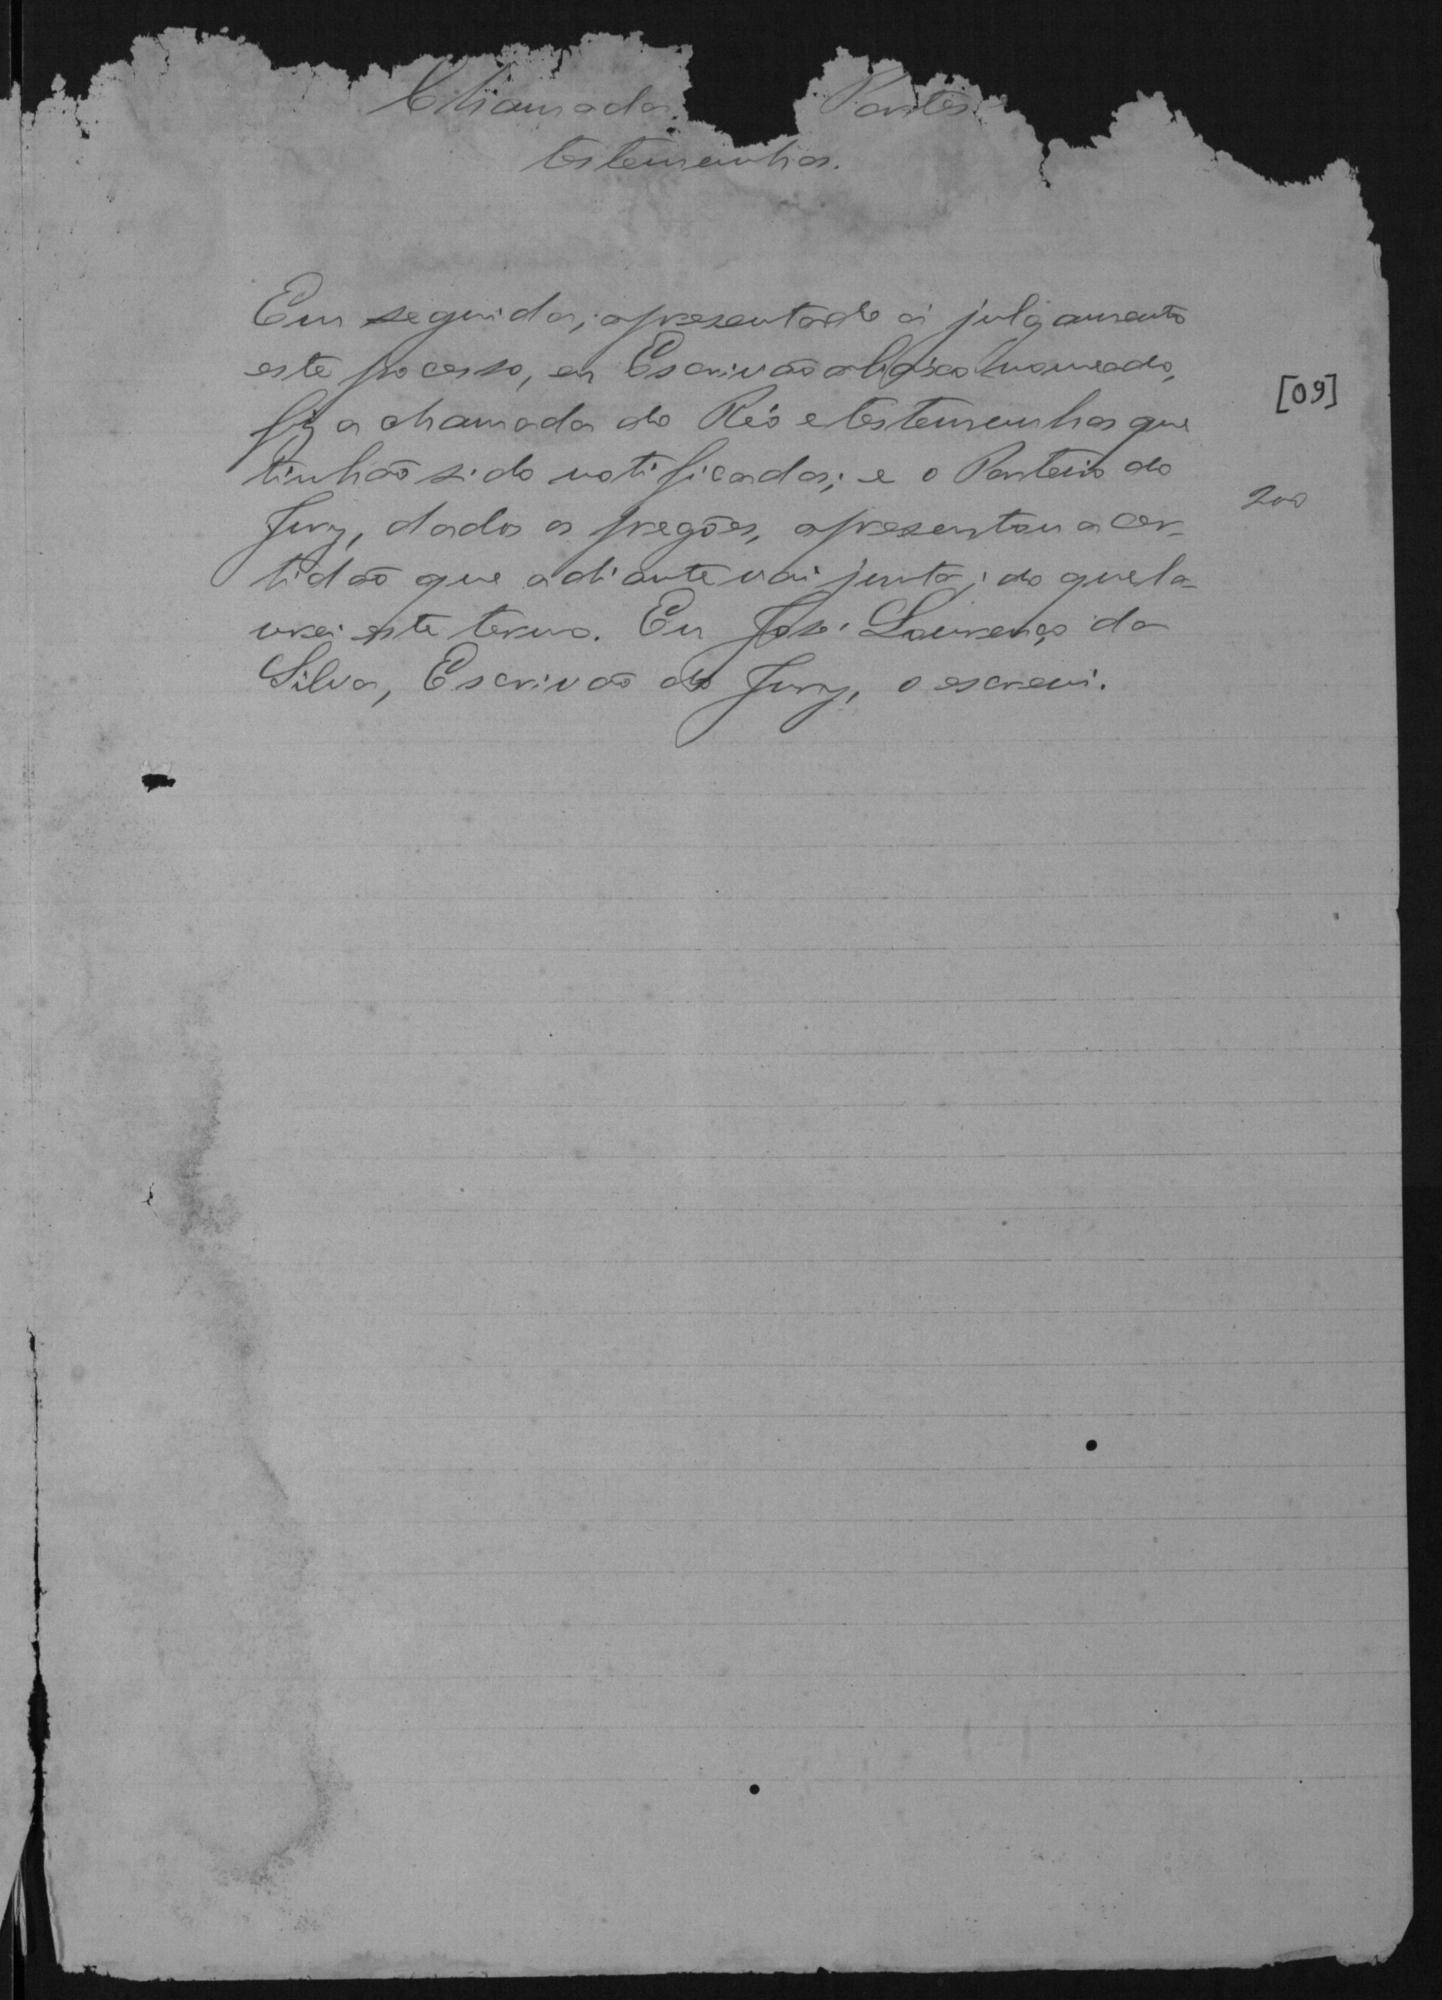 Chamada Partes
testemunhas.
Em seguida, apresentado á julgamento
este processo, eu Escrivão abaixo nomeado,
fiz a chamada do Réo e testemunhas que
[09]
tinhão sido notificadas; e o Porteiro do
200
Jury, dados os pregões, apresentou a cer-
tidão que adiante vai junta; do que la-
vrei este termo. Eu José Lourenço da
Silva, Escrivão do Jury, o escrevi.